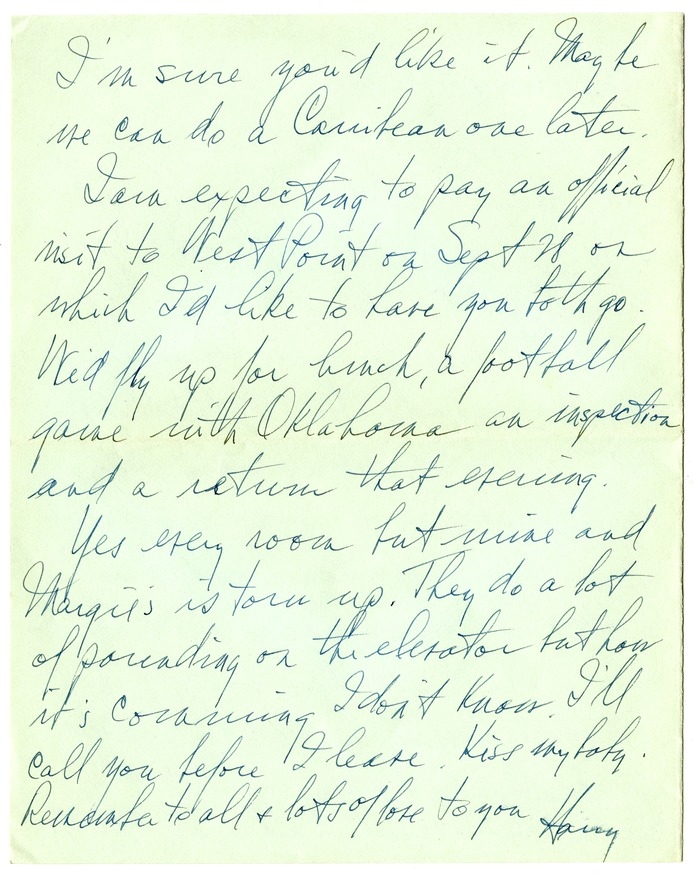 I'm sure you'd like it. Maybe
we can do a Carribean one later.
I am expecting to pay an official
visit to West Point on Sept 28 on
which I'd like to have you both go.
We'd fly up for lunch, a football
game with Oklahoma an inspection
and a return that evening.
Yes every room but mine and
Margie's is torn up. They do a lot
of pounding on the elevator but how
it's comming I don't know. I'll
call you before I leave. Kiss my baby.
Remember to all & lots of love to you Harry